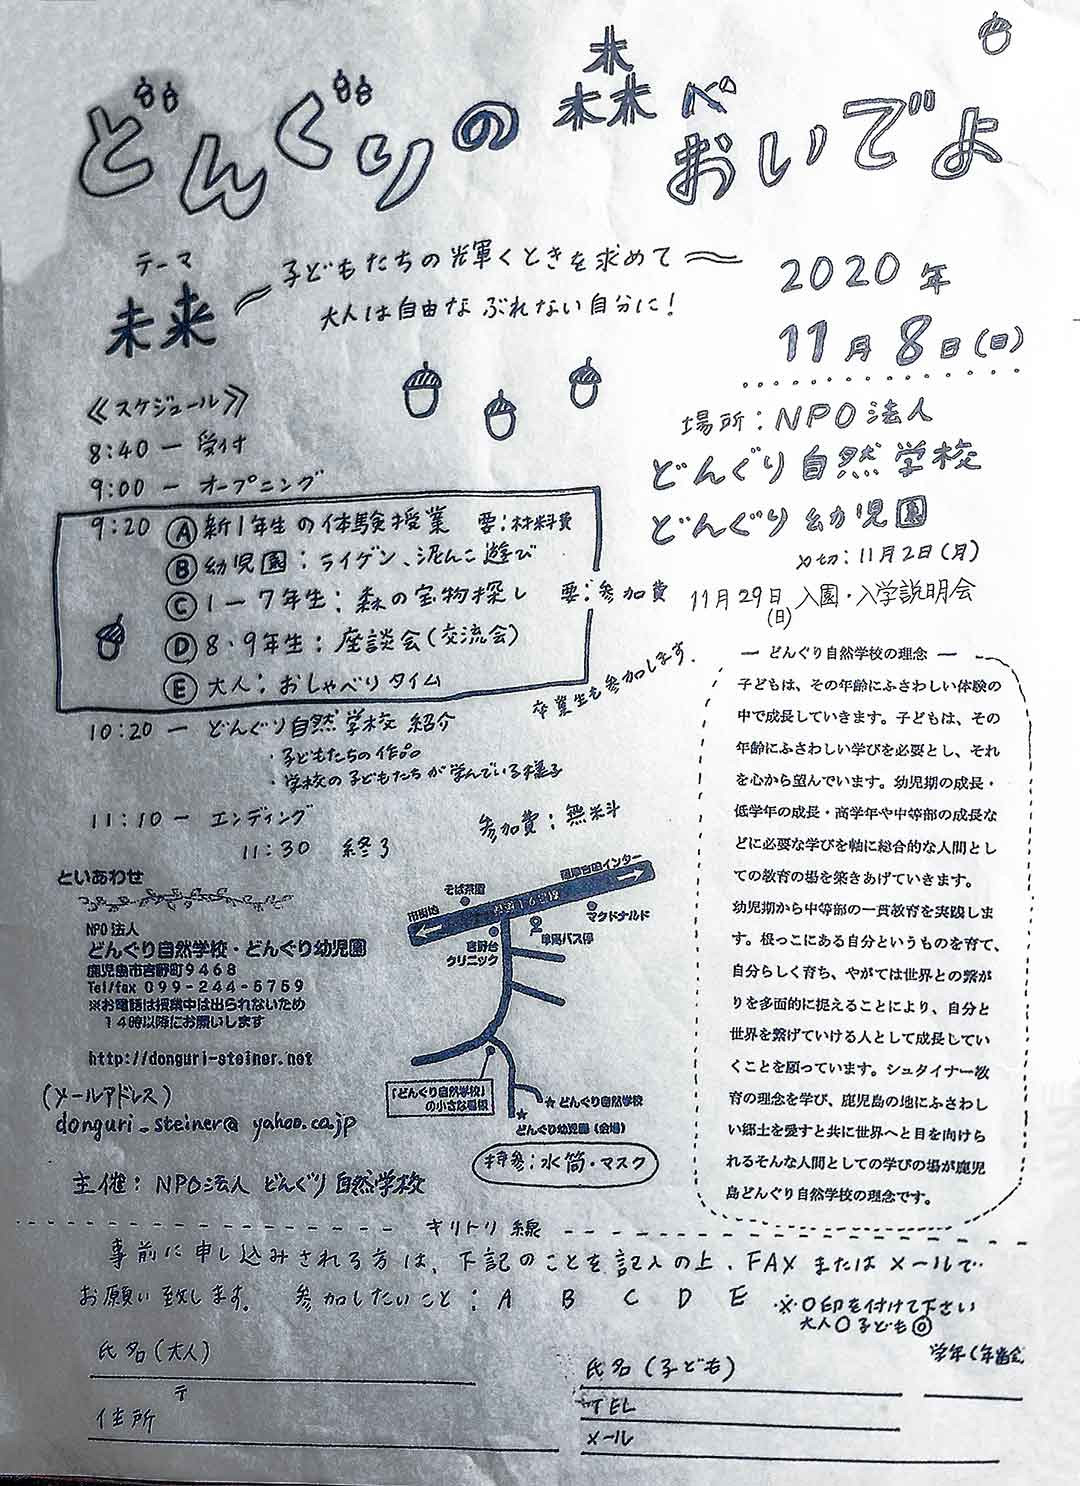 どんぐりの森へ
おいでよ
テーマ
未来
～子どもたちの光輝くときを求めて～
大人は自由なぶれない自分に！
2020年
11月8日(日)
場所：NPO法人
どんぐり自然学校
どんぐり幼児園
〆切：11月2日(月)
11月29日(日) 入園・入学説明会
≪スケジュール≫
8:40 ー 受付
9:00 ー オープニング
9:20 Ⓐ 新1年生の体験授業 要：材料費
Ⓑ 幼児園：ライゲン、泥んこ遊び
Ⓒ 1ー7年生：森の宝物探し 要：参加費
Ⓓ 8・9年生：座談会(交流会)
Ⓔ 大人：おしゃべりタイム
卒業生も参加します.
10:20 ー どんぐり自然学校 紹介
・子どもたちの作品
・学校の子どもたちが学んでいる様子
11:10 ー エンディング
11:30 終了
参加費：無料
ー どんぐり自然学校の理念 ー
子どもは、その年齢にふさわしい体験の
中で成長していきます。子どもは、その
年齢にふさわしい学びを必要とし、それ
を心から望んでいます。幼児期の成長・
低学年の成長・高学年や中等部の成長な
どに必要な学びを軸に総合的な人間とし
ての教育の場を築きあげていきます。
幼児期から中等部の一貫教育を実践しま
す。根っこにある自分というものを育て、
自分らしく育ち、やがては世界との繋が
りを多面的に捉えることにより、自分と
世界を繋げていける人として成長してい
くことを願っています。シュタイナー教
育の理念を学び、鹿児島の地にふさわし
い郷土を愛すと共に世界へと目を向けら
れるそんな人間としての学びの場が鹿児
島どんぐり自然学校の理念です。
といあわせ
NPO法人
どんぐり自然学校・どんぐり幼児園
鹿児島市吉野町9468
Tel/fax 099-244-5759
※お電話は授業中は出られないため
14時以降にお願いします
http://donguri-steiner.net
(メールアドレス)
donguri_steiner@yahoo.co.jp
市街地
そば茶屋
薩摩吉田インター
マクドナルド
吉野台
クリニック
「どんぐり自然学校」
の小さな看板
★ どんぐり自然学校
★
どんぐり幼児園（会場）
持参：水筒・マスク
主催：NPO法人 どんぐり自然学校
キリトリ線
事前に申し込みされる方は、下記のことを記入の上、FAXまたはメールで
お願い致します。 参加したいこと：A B C D E ※○印を付けて下さい
大人○子ども◎
氏名(大人)
氏名(子ども)
学年(年齢)
〒
住所
TEL
メール